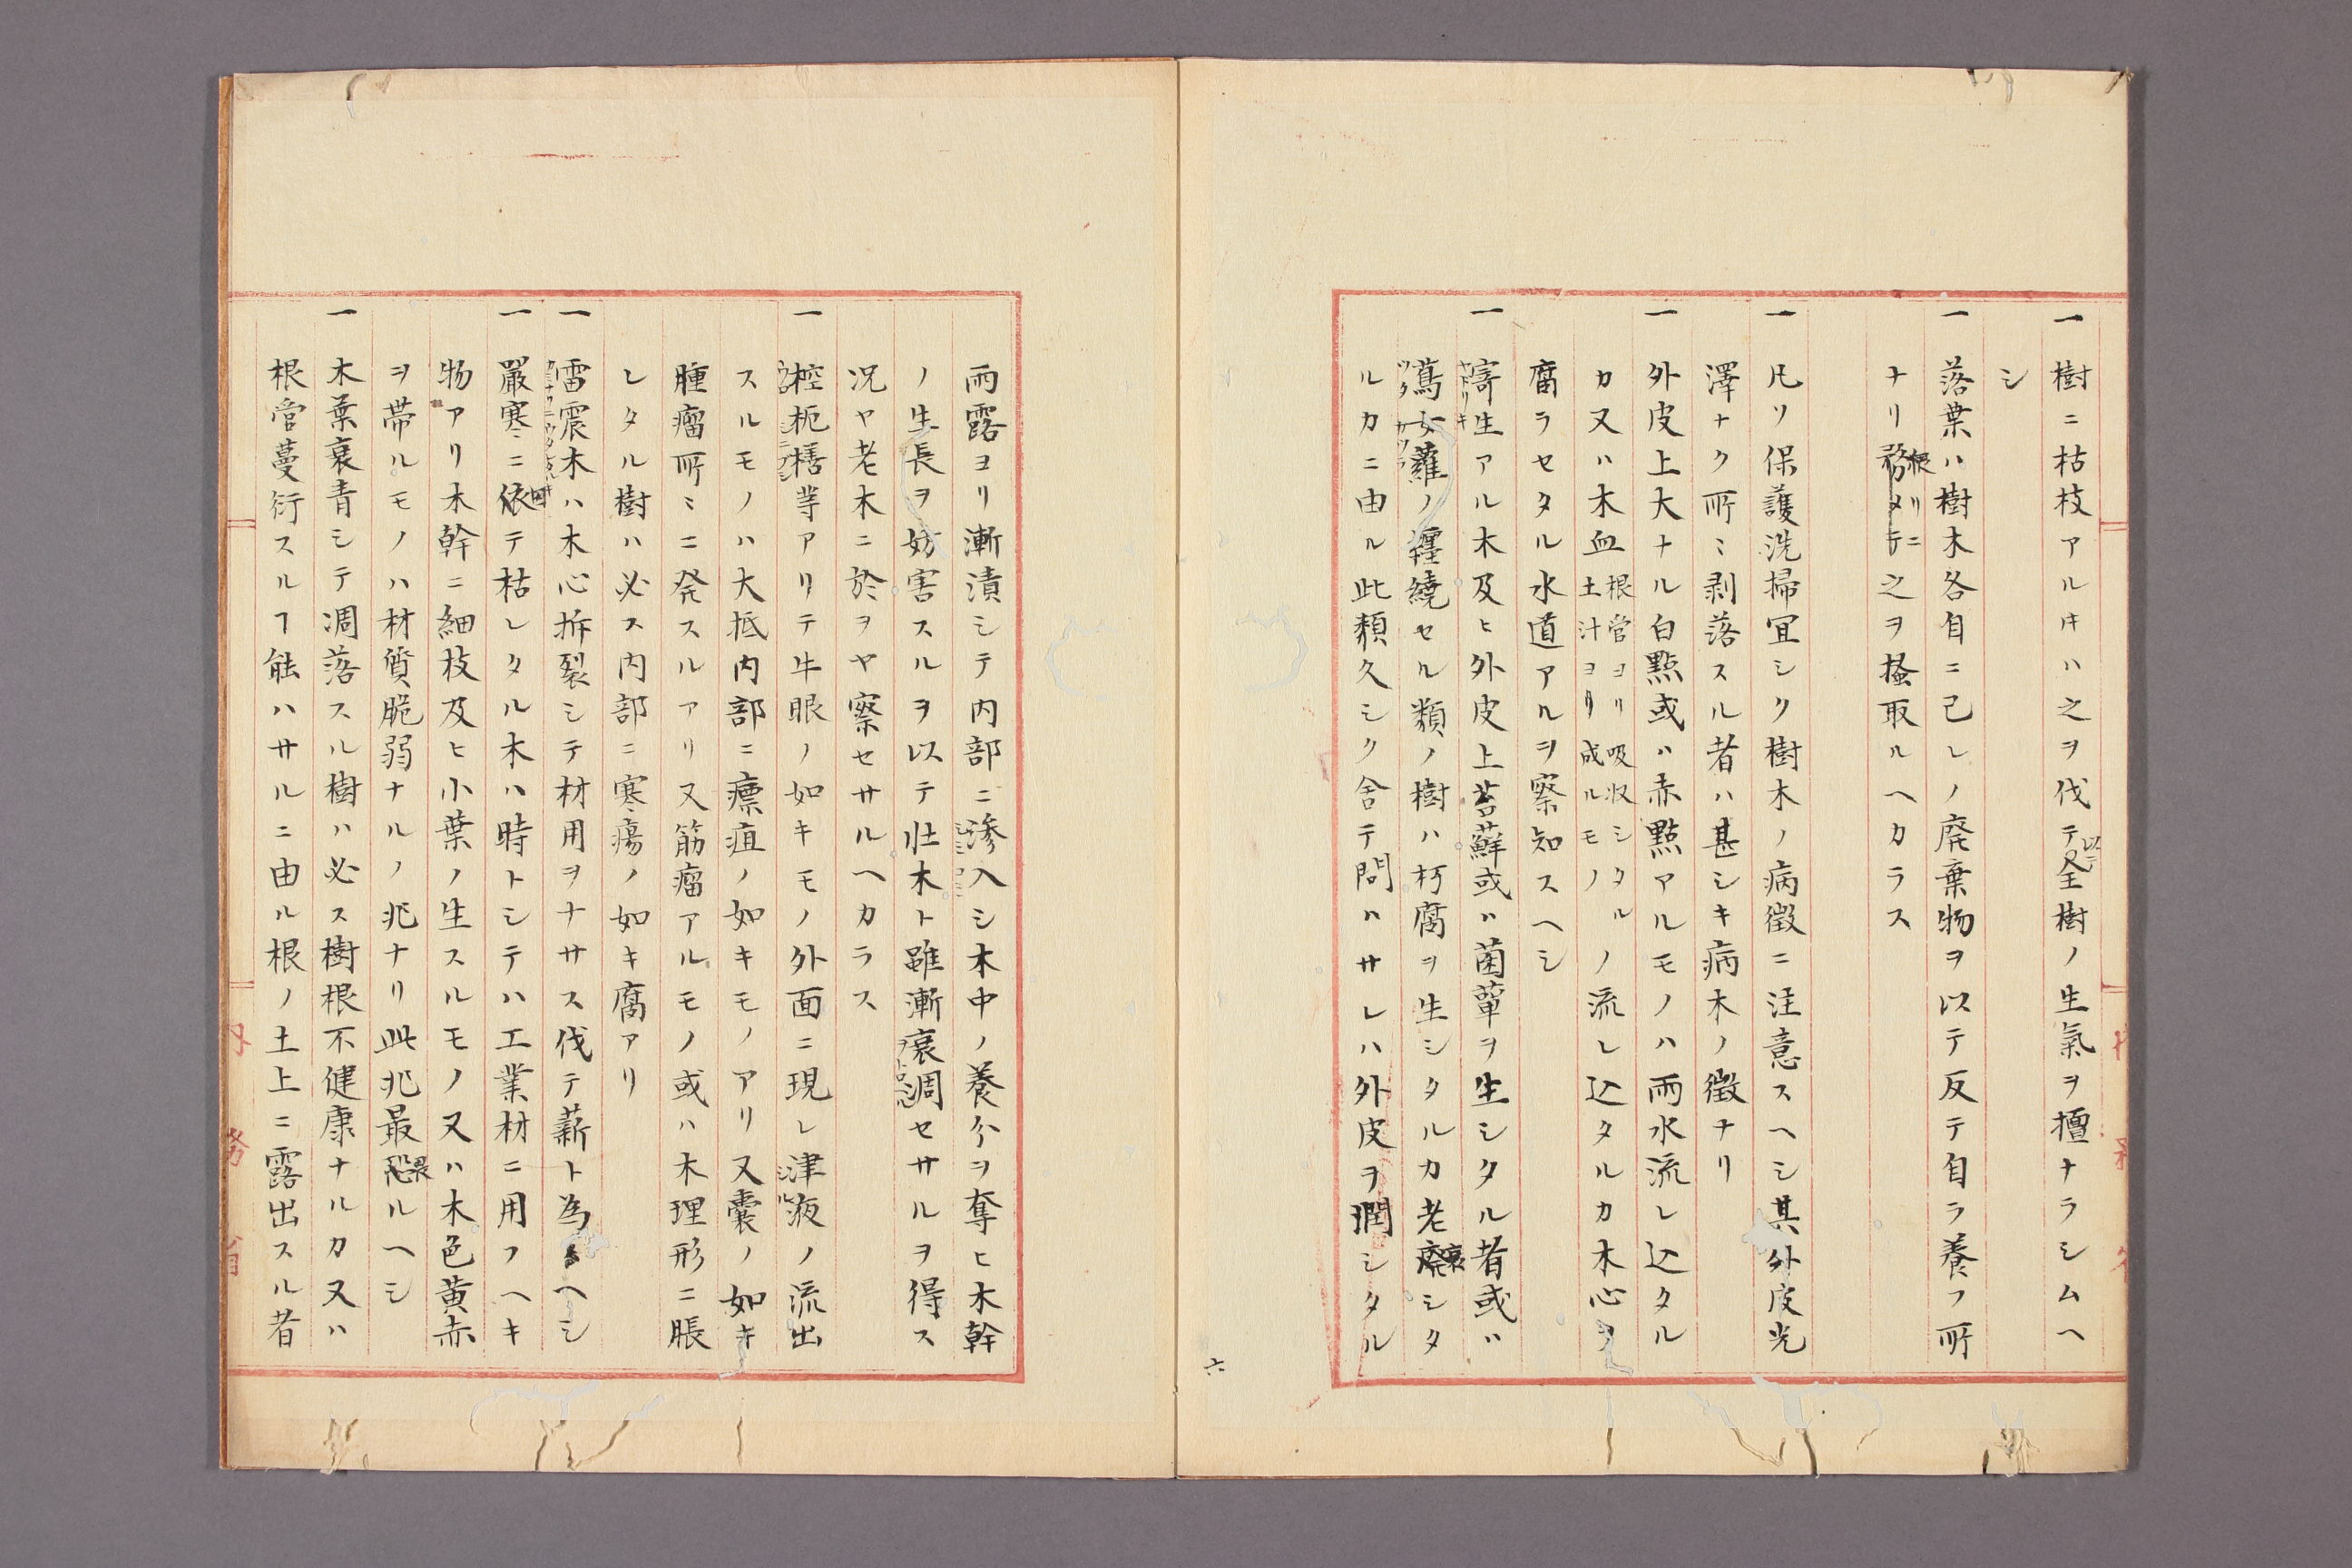 一 樹ニ枯枝アル𪜈ハ之ヲ伐テ以テ全樹ノ生氣ヲ擅ナラシムヘ
シ
一 落葉ハ樹木各自ニ己レノ廃棄物ヲ以テ反テ自ラ養フ所
ナリ務メテ根リニ之ヲ掻取ルヘカラス
一 凡ソ保護洗掃冝シク樹木ノ病徴ニ注意スヘシ其外皮光
澤ナク所ミ剥落スル者ハ甚シキ病木ノ徴ナリ
一 外皮上大ナル白點或ハ赤點アルモノハ雨水流レ込タル
カ又ハ木血根管ヨリ吸収シタル土汁ヨリ成ルモノノ流レ込タルカ木心ヲ
腐ラセタル水道アルヲ察知スヘシ
一 寄生アル木及ヒ外皮上苔蘚或ハ菌蕈ヲ生シタル者或ハ
蔦女蘿ノ纏繞セル類ノ樹ハ朽腐ヲ生シタルカ老衰シタ
ルカニ由ル此類久シク舎テ問ハサレハ外皮ヲ潤シタル
六
雨露ヨリ漸漬シテ内部ニ滲入シ木中ノ養分ヲ奪ヒ木幹
ノ生長ヲ妨害スルヲ以テ壮木ト雖漸衰凋セサルヲ得ス
况ヤ老木ニ於ヲヤ察セサルヘカラス
一 椌枙㯏等アリテ牛眼ノ如キモノ外面ニ現レ津液ノ流出
スルモノハ大抵内部ニ瘭疽ノ如キモノアリ又嚢ノ如キ
腫瘤所ミニ発スルアリ又筋瘤アルモノ或ハ木理形ニ脹
レタル樹ハ必ス内部ニ寒瘍ノ如キ腐アリ
一 雷震木ハ木心拆裂シテ材用ヲナサス伐テ薪ト為スヘシ
一 嚴寒ニ依因テ枯レタル木ハ時トシテハ工業材ニ用フヘキ
物アリ木幹ニ細枝及ヒ小葉ノ生スルモノ又ハ木色黄赤
ヲ帯ルモノハ材質脆弱ナルノ兆ナリ此兆最恐畏ルヘシ
一 木葉衰青シテ凋落スル樹ハ必ス樹根不健康ナルカ又ハ
根管蔓衍スルヿ能ハサルニ由ル根ノ土上ニ露出スル者
内務省